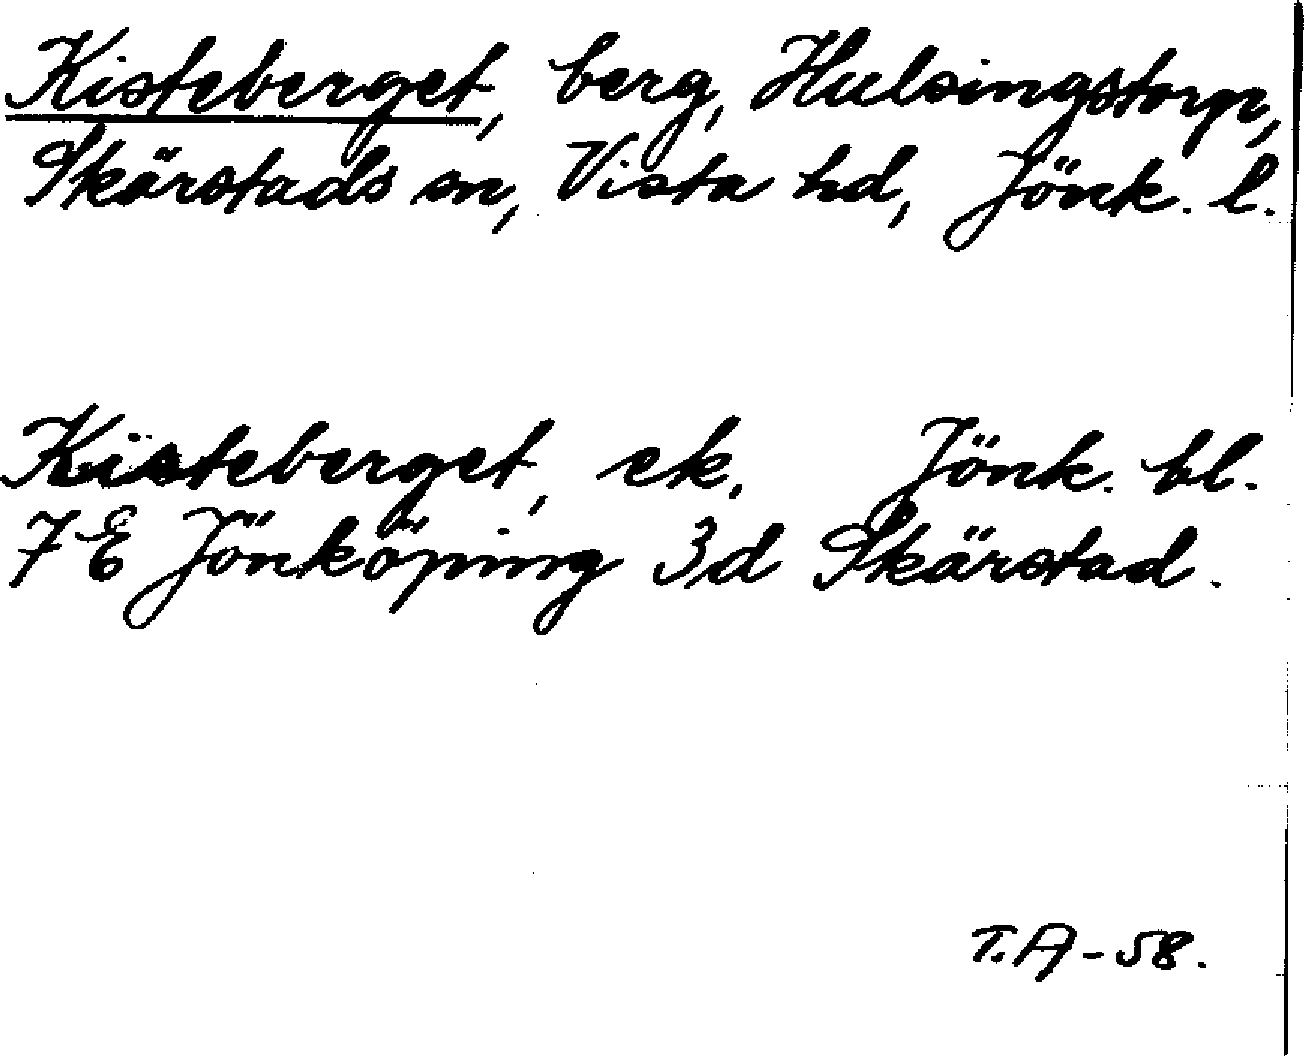 Kisteberget, berg, Hulsingstorp,
Skärstads sn, Vista hd, Jönk. l.
Kisteberget, ek. Jönk. bl.
7E Jönköping 3d Skärstad.
T.A-58.